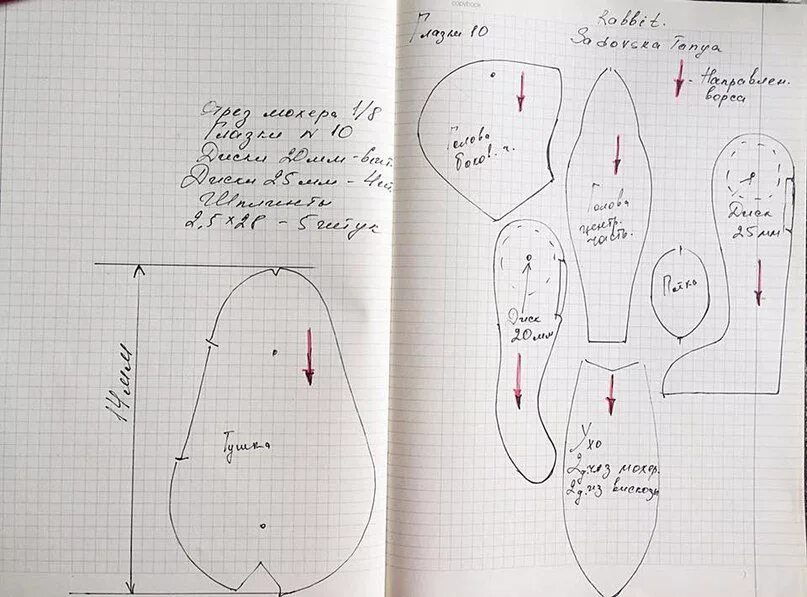 copybook
Отрез мохера 1/8
Глазки n 10
Диски 20мм - 6шт.
Диски 25мм - 4шт.
Шплинты
2,5 × 28 - 5 штук
14мм
Тушка
Глазки 10
Rabbit.
Sadovska Tanya
- Направлен.
ворса
Голова
боков. ч.
Голова
центр.
часть.
Диск
25мм
Диск
20мм
Пятка
Ухо
2д. из мохер.
2д. из вискозы